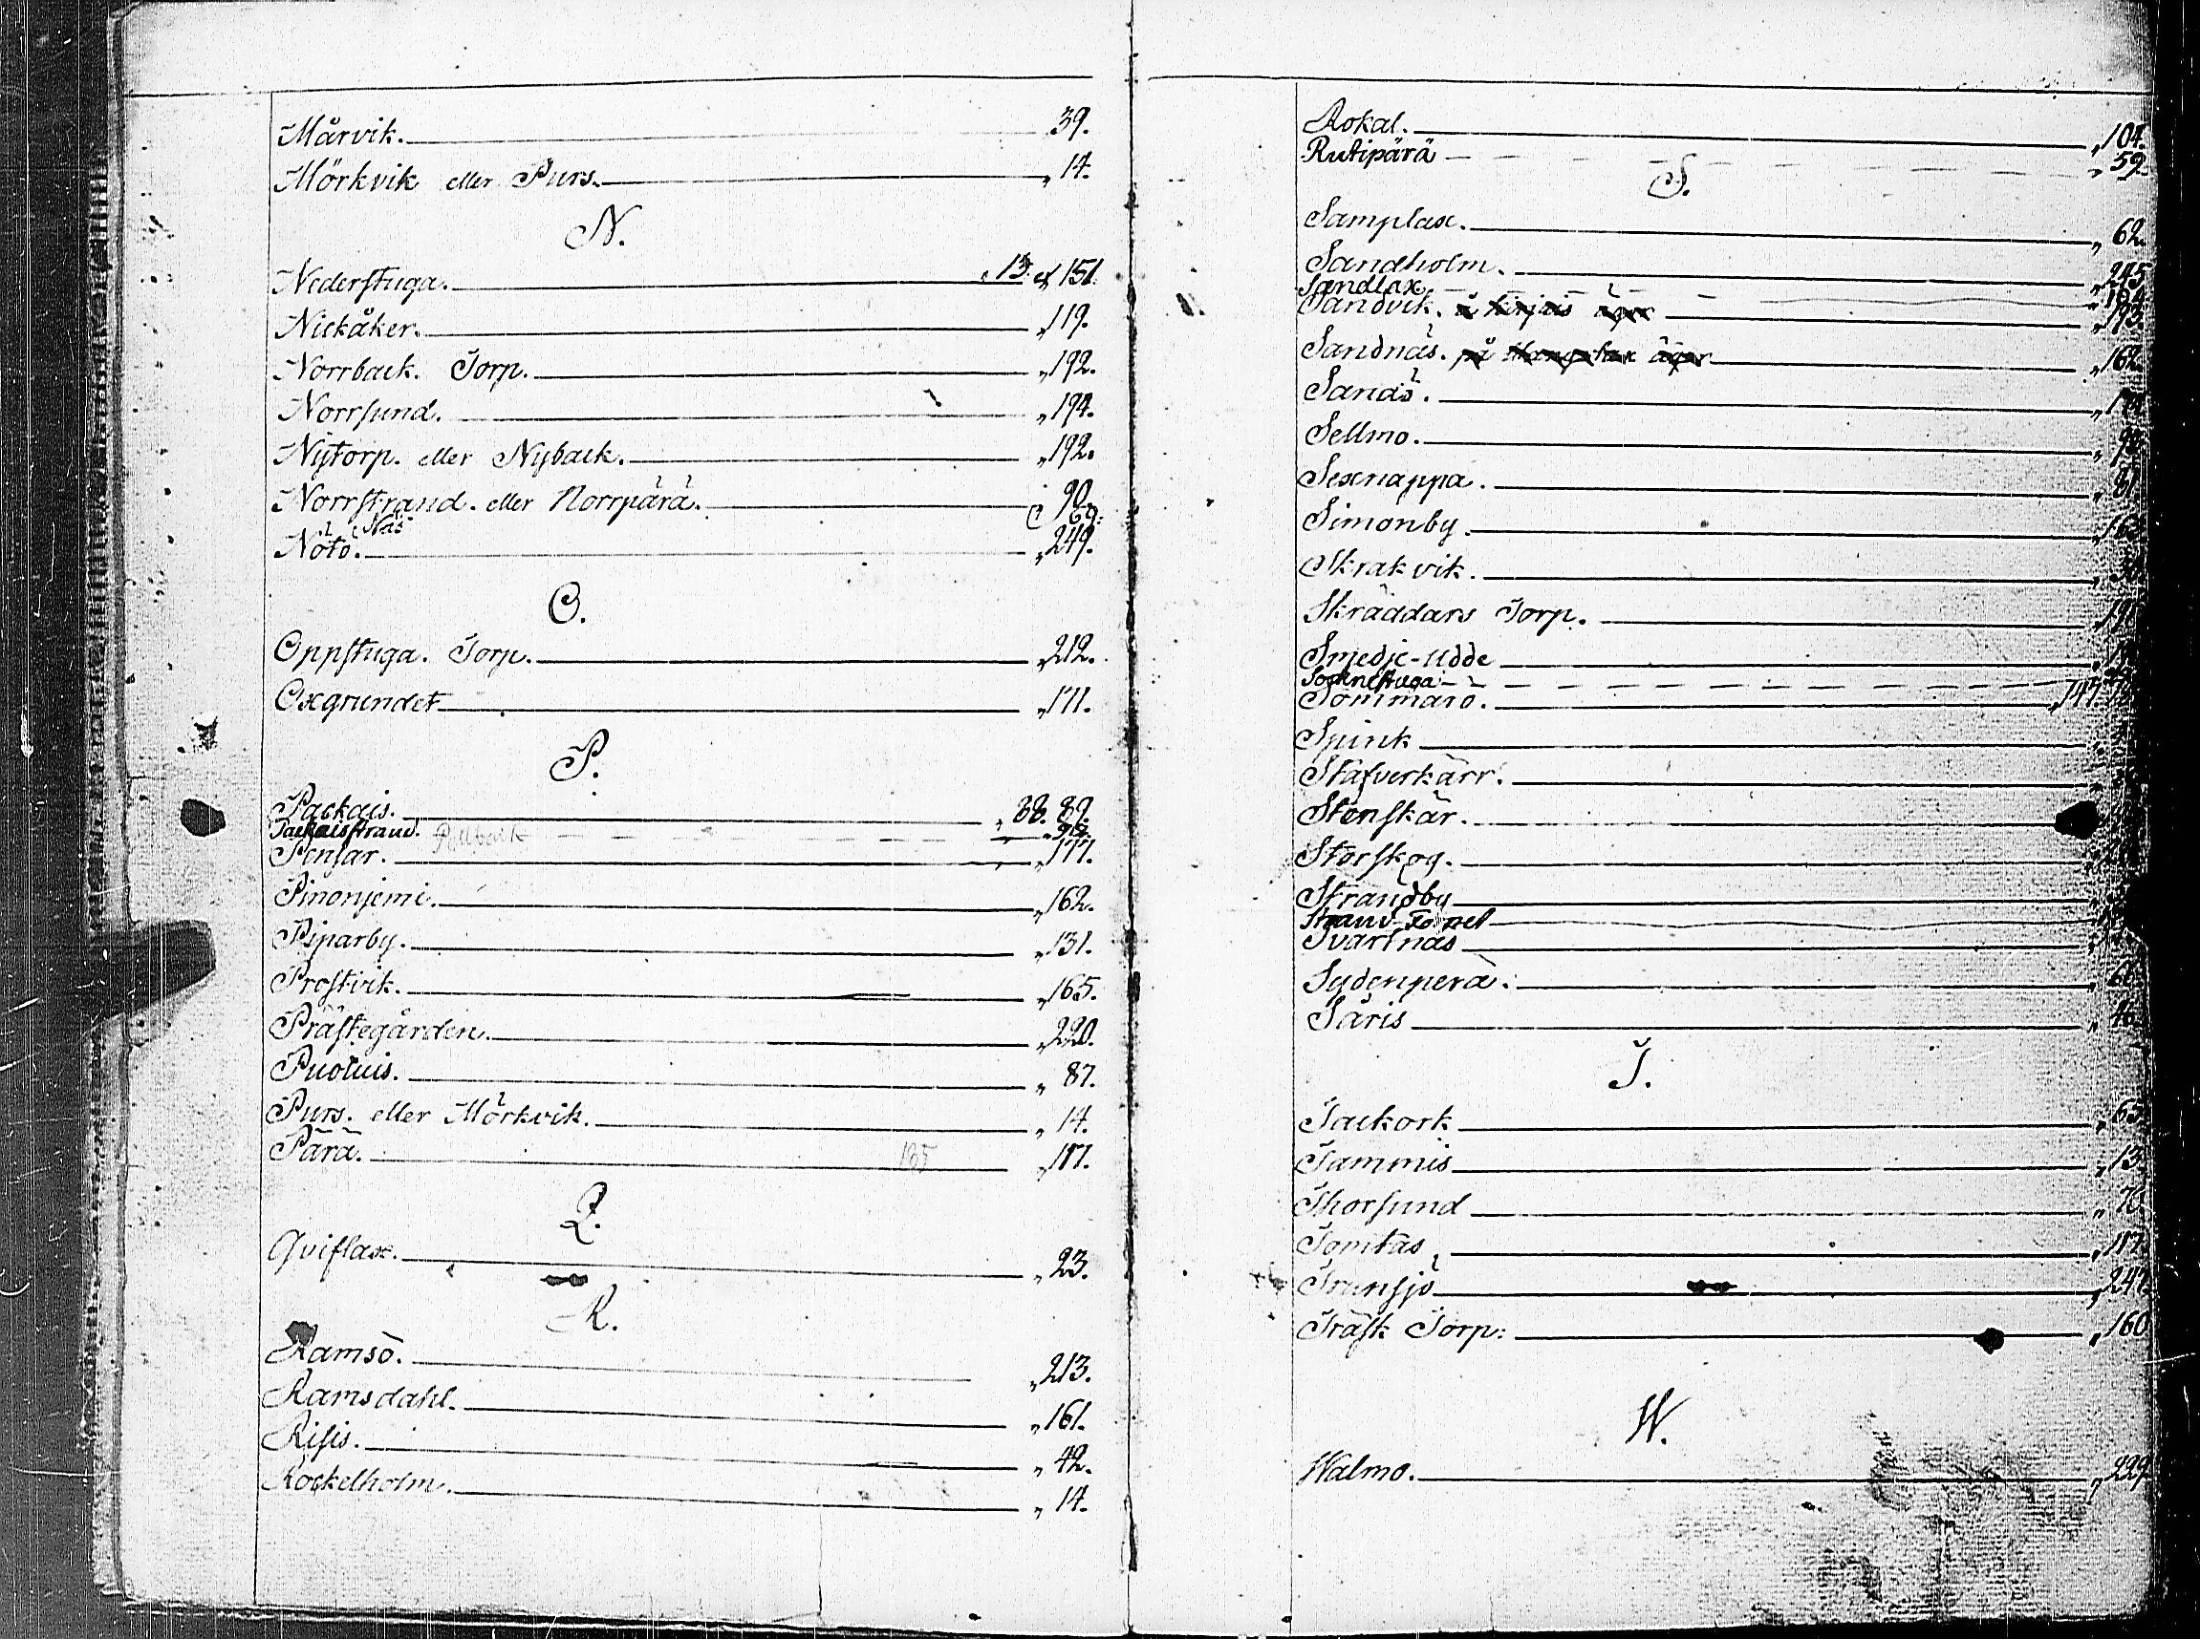 Mårvik. 39.
Mörkvik eller Purs. „ 14.
N.
Nederstuga. „ 13. et 151.
Nickåker. „ 119.
Norrback. Torp. „ 192.
Norrsund. „ 194.
Nÿtorp. eller Nÿback. „ 192.
Norrstrand. eller Norrpärä. 90.
Näs 69.
Nötö. „ 249.
O.
Oppstuga. Torp. „ 212.
Oxgrundet „ 171.
P.
Packais. „ 88. 89.
Packaisstrand.
Pensar. „ 177.
Pinonjemi. „ 162.
Piparby. „ 131.
Prostvik. „ 165.
Prästegården. „ 220.
Puotuis. „ 87.
Purs. eller Mörkvik. „ 14.
Pärä. 185 „ 117.
Q.
Qviflax. „ 23.
R.
Ramsö. „ 213.
Ramsdahl. „ 161.
Risis. „ 42.
Rockelholm. „ 14.
Rokal. „ 104.
Rutipärä „ 59.
S.
Samplax. „ 62.
Sandholm. „ 245
Sandlax. „ 164
Sandvik. „ 193.
Sandnäs. „ 162.
Sandö.
Sellmo.
Sexnappa. „ 81
Simonby.
Skrakvik.
Skräddars Torp.
Smedje-Udde
Socknestuga
Sommarö. „ 147.
Spink
Stafverkärr.
Stenskär.
Storskog.
Strandby
Strand-Torpet
Svartnäs
Sydenperä.
Säris „ 46
T.
Tackork „ 65
Tammis „ 13
Thorsund
Tomtas „ 117.
Trunsjö „ 247.
Träsk Torp: „ 160
W.
Walmo. „ 229